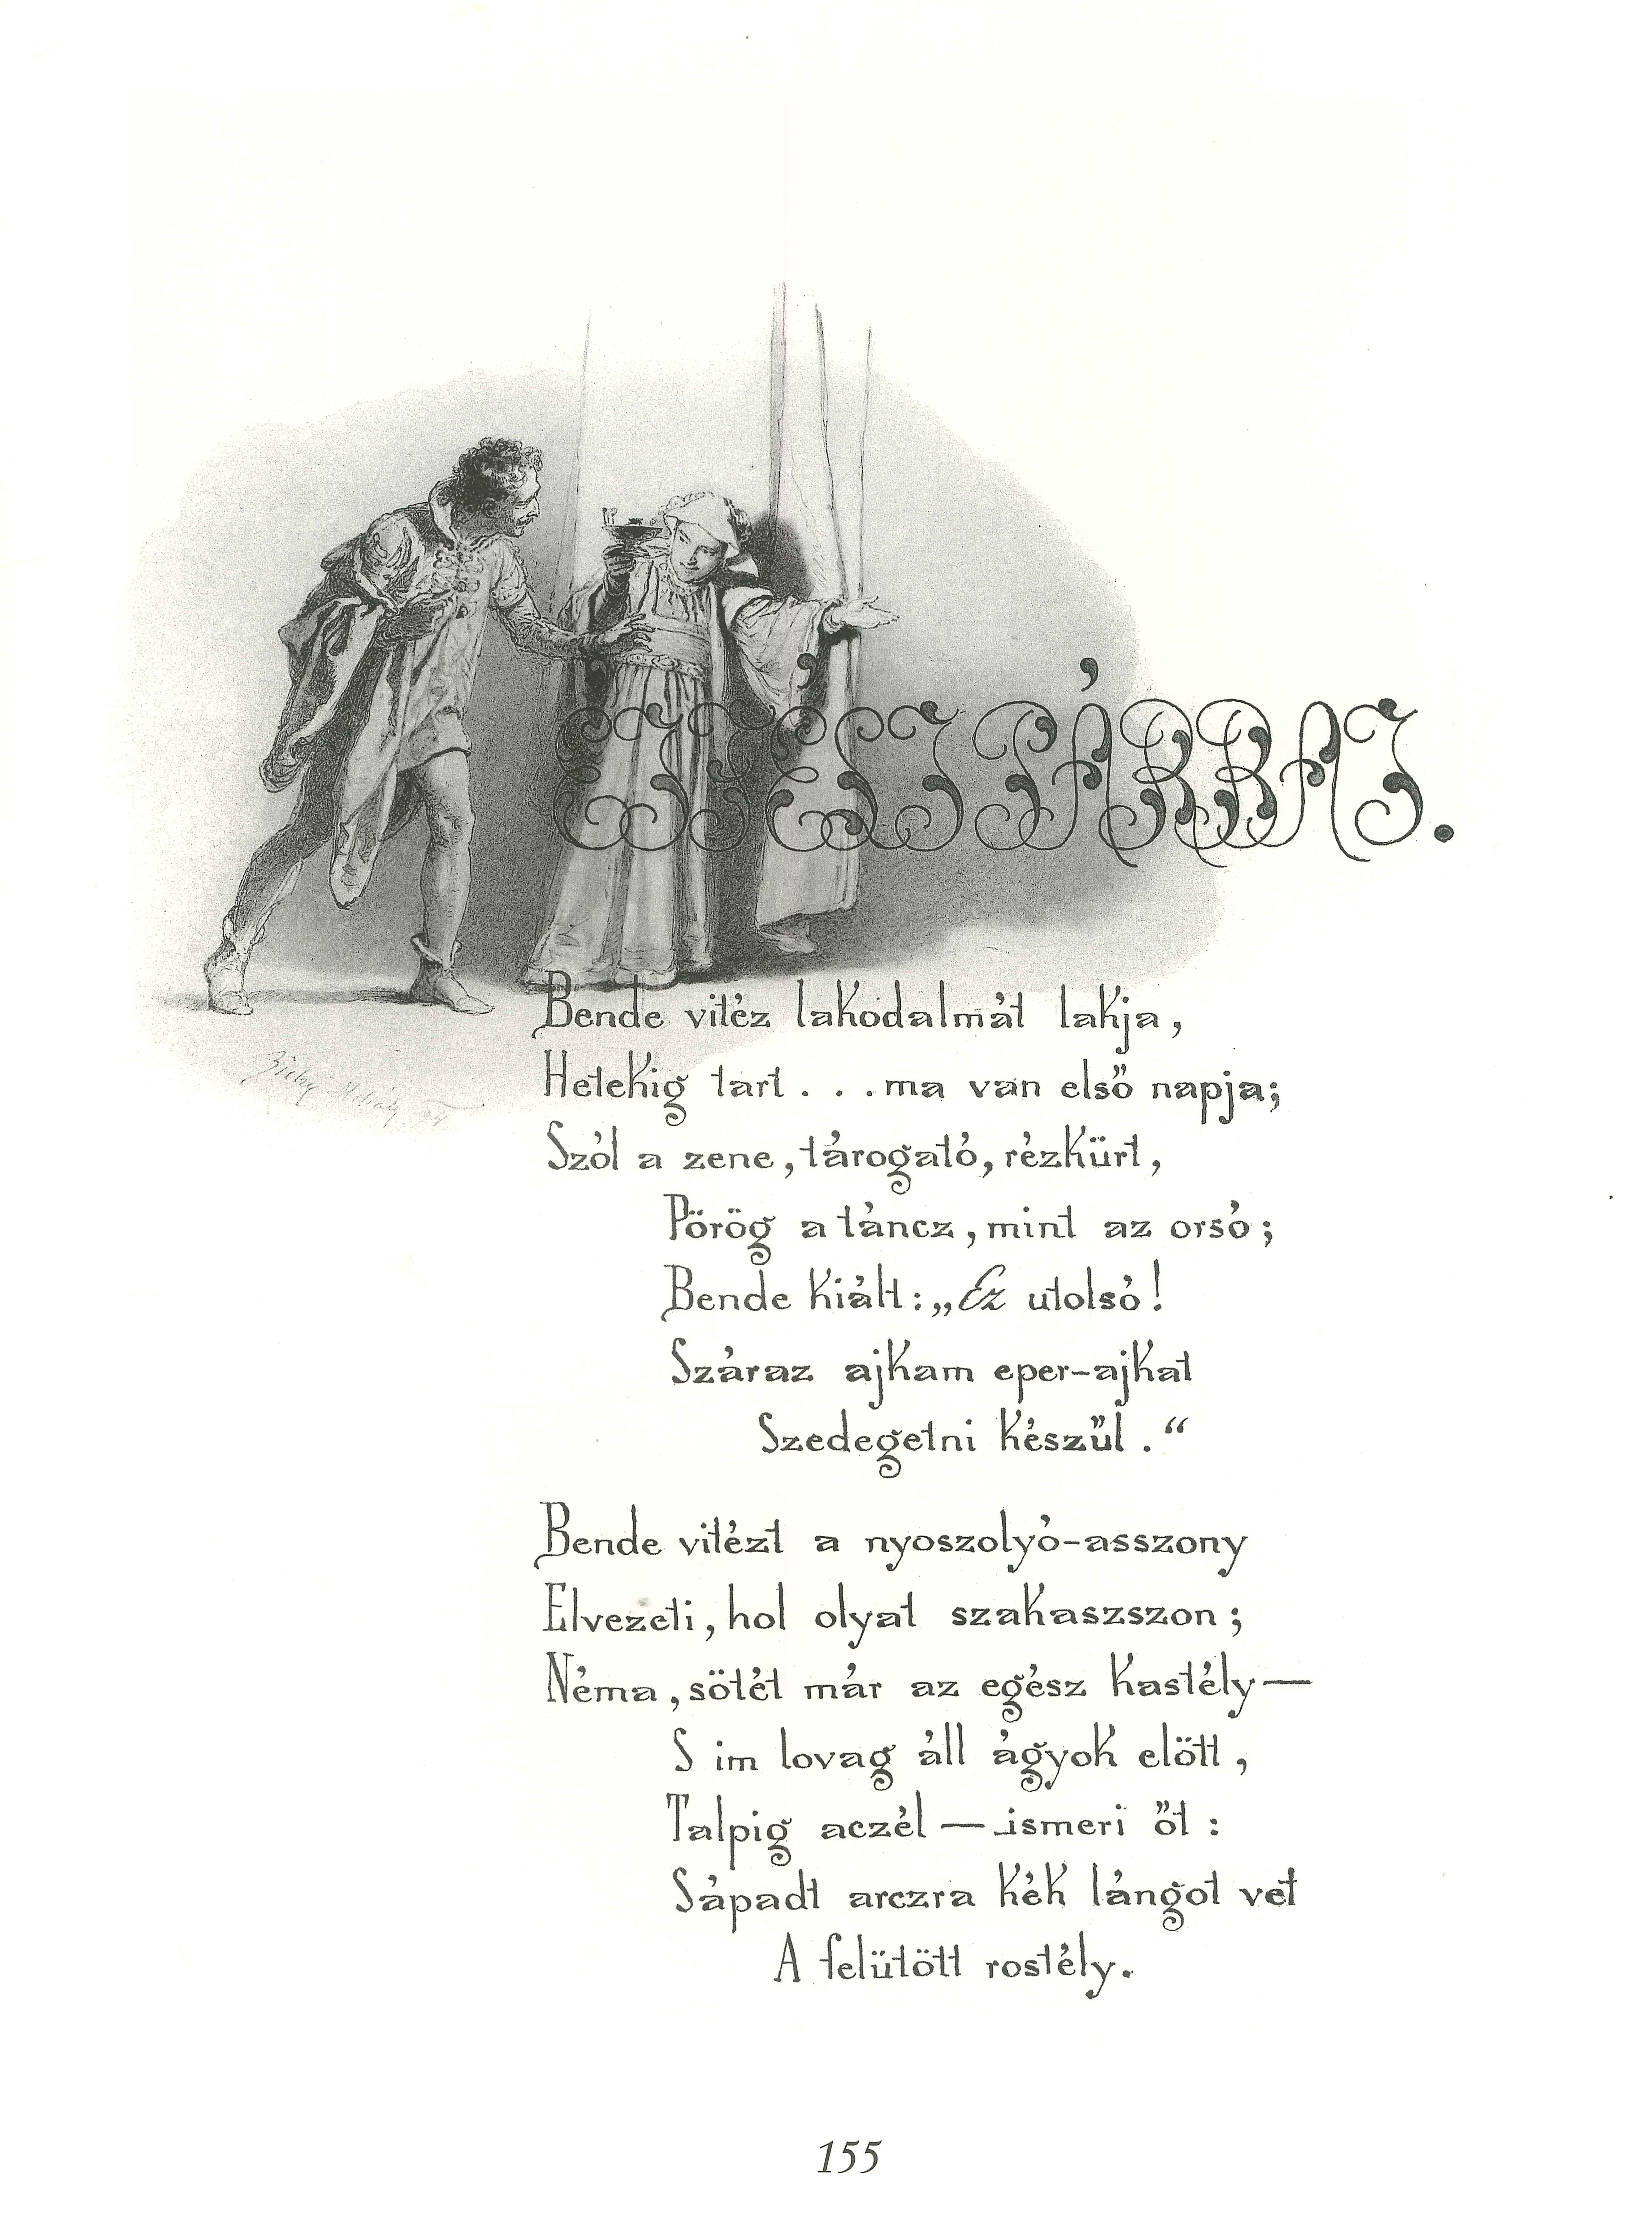 ÉJFÉLI PÁRBAJ.
Bende vitéz lakodalmát lakja,
Hetekig tart . . . ma van első napja;
Szól a zene, tárogató, rézkürt,
Pörög a táncz, mint az orsó;
Bende kiált: „Ez utolsó!
Száraz ajkam eper-ajkat
Szedegetni készűl.“
Bende vitézt a nyoszolyó-asszony
Elvezeti, hol olyat szakaszszon;
Néma, sötét már az egész kastély—
S im lovag áll ágyok elött,
Talpig aczél — ismeri őt:
Sápadt arczra kék lángot vet
A felütött rostély.
Zichy Mihály
155